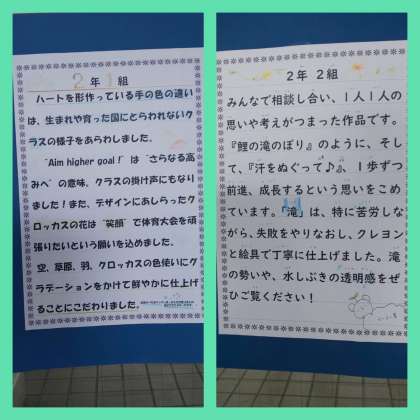 2年1組
ハートを形作っている手の色の違い
は、生まれや育った国にとらわれないク
ラスの様子をあらわしました。
"Aim higher goal!" は "さらなる高
みへ" の意味、クラスの掛け声にもなり
ました!また、デザインにあしらったク
ロッカスの花は "笑顔" で体育大会を頑
張りたいという願いを込めました。
空、草原、羽、クロッカスの色使いにグ
ラデーションをかけて鮮やかに仕上げ
ることにこだわりました。
2年 2組
みんなで相談し合い、1人1人の
思いや考えがつまった作品です。
『鯉の滝のぼり』のように、そし
て、『汗をぬぐって♪』、1歩ずつ
前進、成長するという思いをこめ
ています。『滝』は、特に苦労しな
がら、失敗をやりなおし、クレヨン
と絵具で丁寧に仕上げました。滝
の勢いや、水しぶきの透明感をぜ
ひご覧ください!